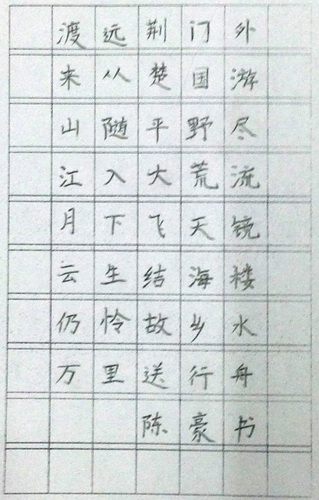 渡远荆门外
来从楚国游
山随平野尽
江入大荒流
月下飞天镜
云生结海楼
仍怜故乡水
万里送行舟
陈豪书